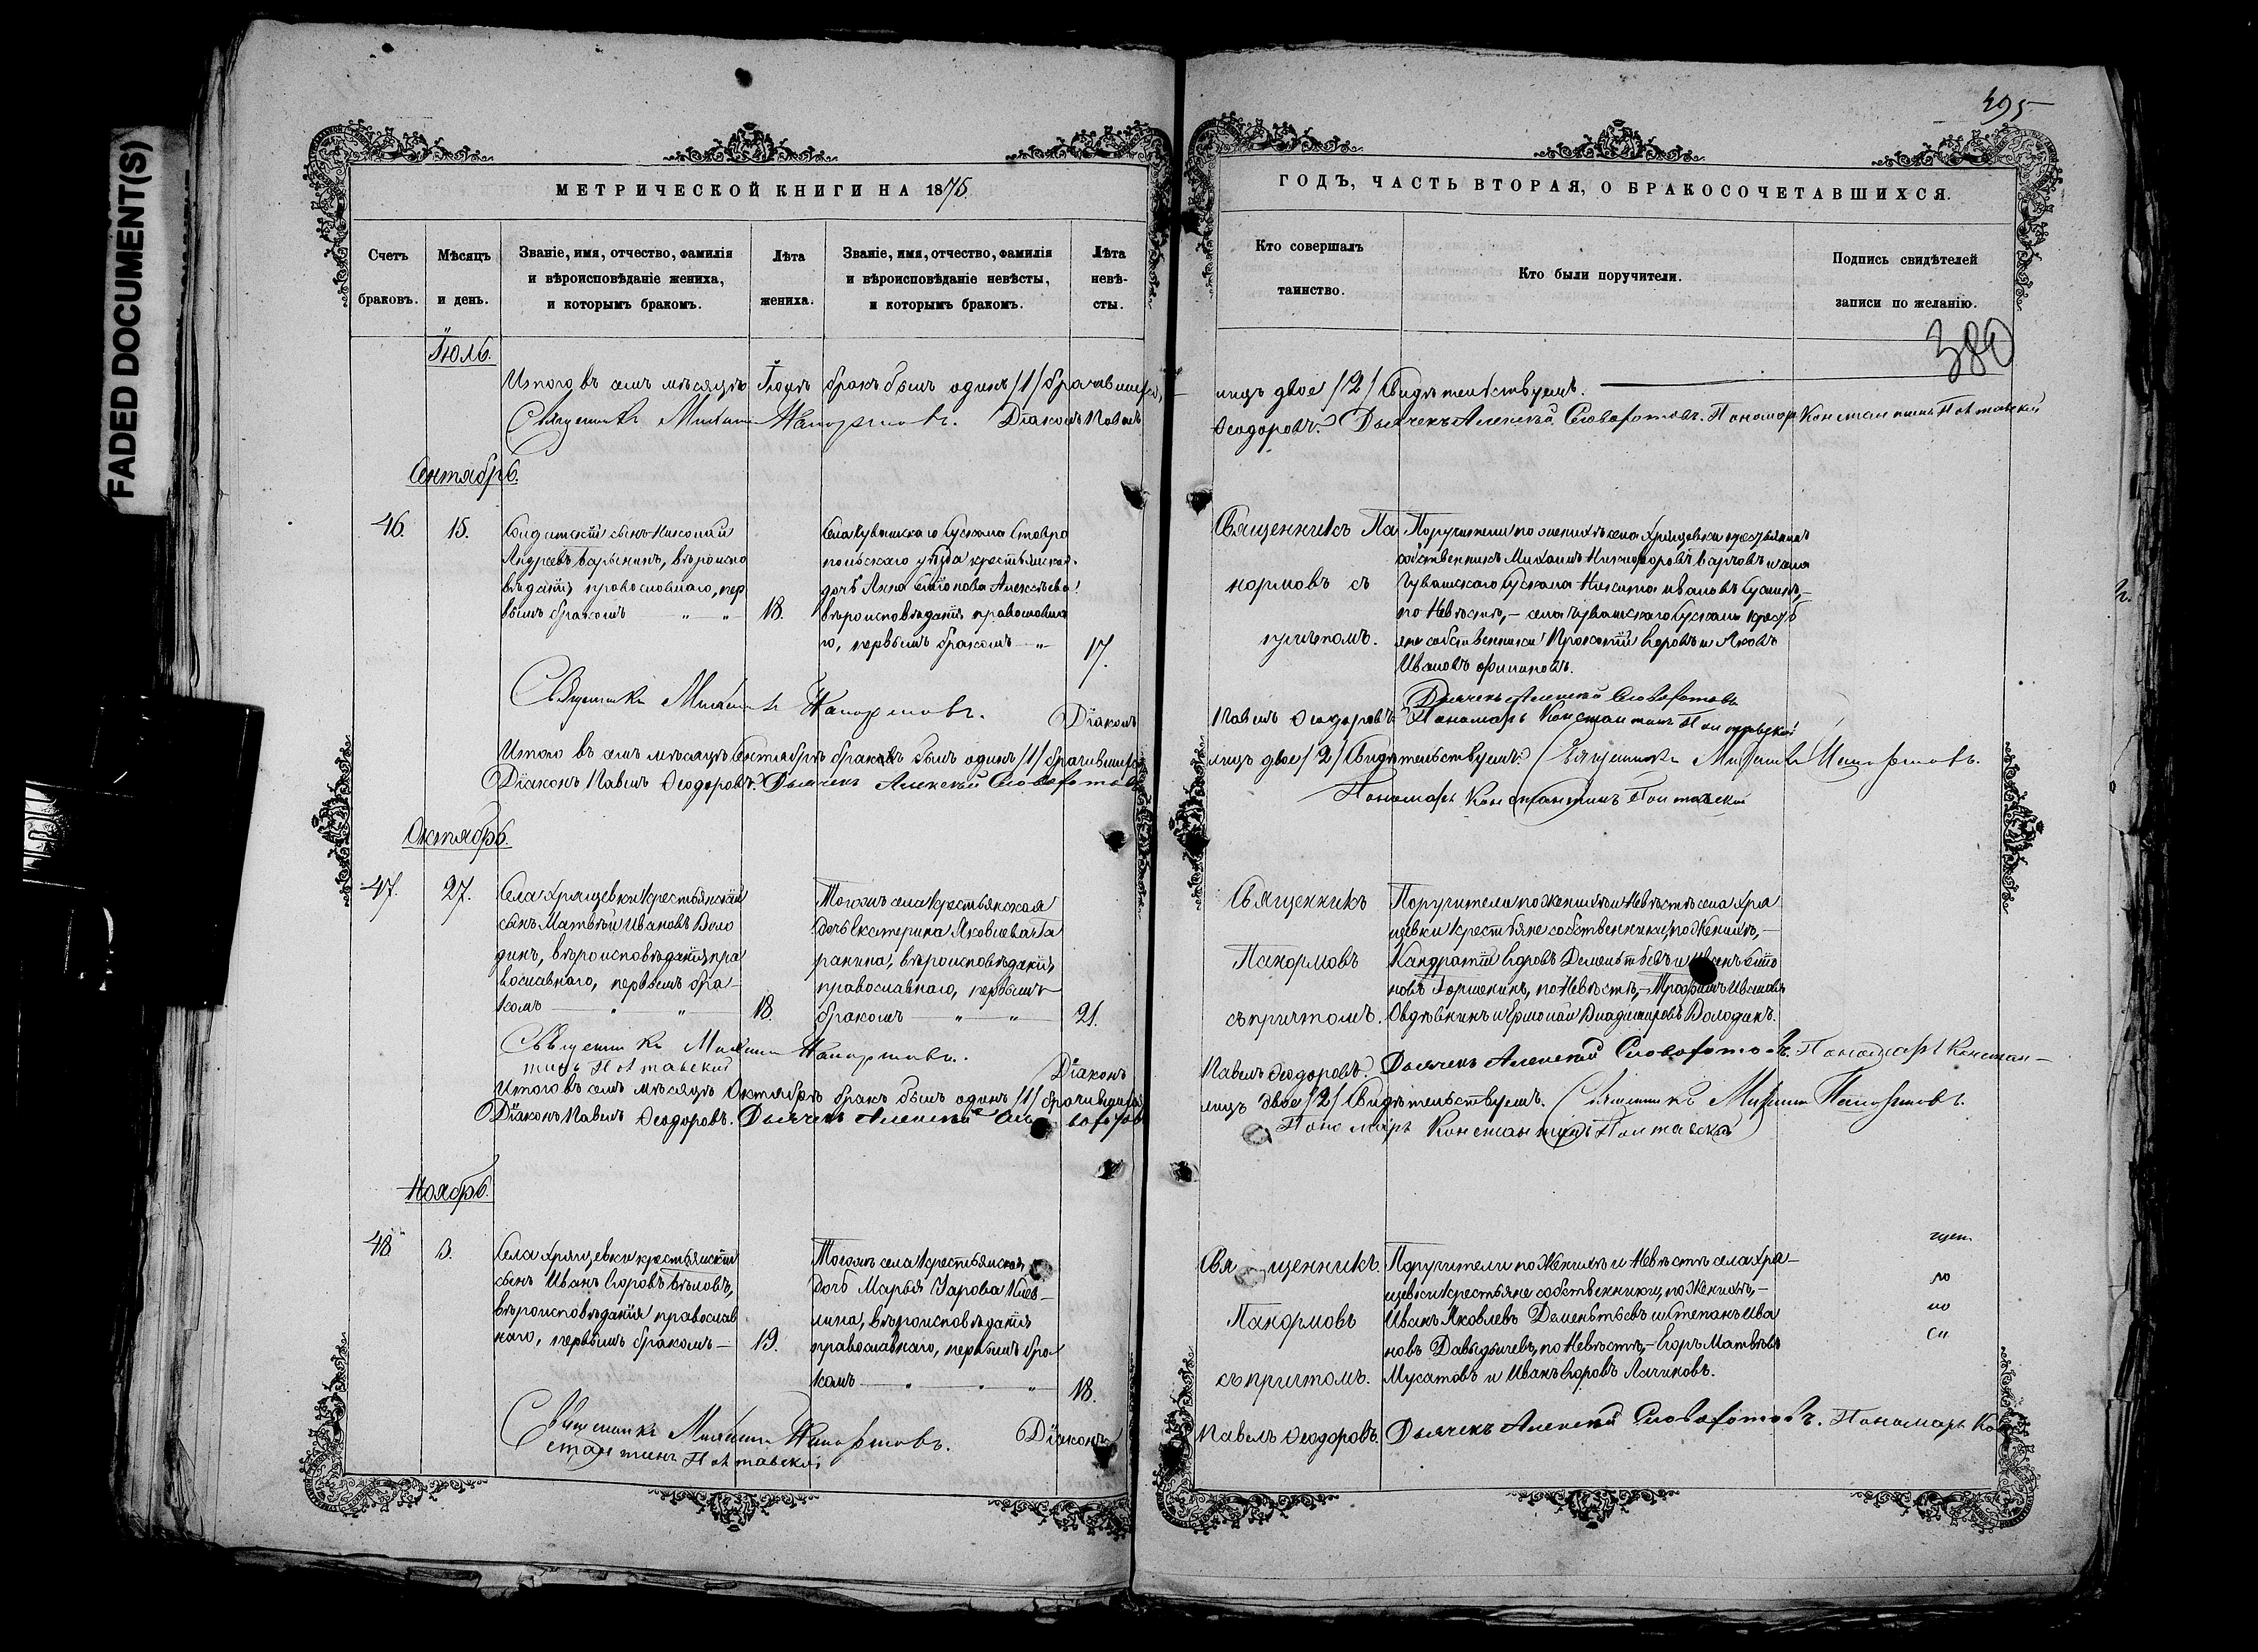 FADED DOCUMENT(S)
495
МЕТРИЧЕСКОЙ КНИГИ НА 1875.
ГОДЪ, ЧАСТЬ ВТОРАЯ, О БРАКОСОЧЕТАВШИХСЯ.
Счетъ
браковъ.
Мѣсяцъ
и день.
Званіе, имя, отчество, фамилія
и вѣроисповѣданіе жениха,
и которымъ бракомъ.
Лѣта
жениха.
Званіе, имя, отчество, фамилія
и вѣроисповѣданіе невѣсты,
и которымъ бракомъ.
Лѣта
невѣ-
сты.
Кто совершалъ
таинство.
Кто были поручители.
Подпись свидѣтелей
записи по желанію.
380
Іюль.
Итого въ семъ мѣсяцѣ Іюлѣ бракъ былъ одинъ /1/ брачившихся,
лицъ двое /2/ Свидѣтельствуемъ.
Священникъ Михаилъ Панормовъ. Діаконъ Павелъ
Ѳеодоровъ. Дьячекъ Алексѣй Словоротовъ. Пономарь Константинъ Полтавскій
Сентябрь.
46.
15.
сынъ Николай
Андреевъ вѣроиспо
вѣданія православнаго, пер
вымъ бракомъ " "
18.
Села Чувашскаго Сускана Ставро
польскаго уѣзда крестьянская
дочь Анна Алексѣева
вѣроисповѣданія православна
го, первымъ бракомъ "
17.
Священникъ Па
нормовъ съ
причтомъ.
Поручители по женихѣ села Хрящевки крестьянинъ
собственникъ Михаилъ Никифоровъ и села
Чувашскаго Сускана Никита Ивановъ
по Невѣстѣ, – села Чувашскаго Сускана крестьь
яне собственники Прокопій Егоровъ и Яковъ
Ивановъ Филиповъ.
Священникъ Михаилъ Панормовъ. Діаконъ
Павелъ Ѳеодоровъ.
Дьячекъ Алексѣй Словоротовъ
Пономарь Константинъ Полтавскій
Итого въ семъ мѣсяцѣ Сентябрѣ браковъ былъ одинъ /1/ брачившихся
лицъ двое /2/ Свидѣтельствуемъ: Священникъ Михаилъ Панормовъ.
Діаконъ Павелъ Ѳеодоровъ. Дьячекъ Алексѣй Словоротовъ
Пономарь Константинъ Полтавскій
Октябрь.
47.
27.
Села Хрящевки Крестьянскій
сынъ Матвѣй Ивановъ Воло
динъ, вѣроисповѣданія пра
вославнаго, первымъ бра-
комъ " "
18.
Тогожъ села Крестьянская
дочь Екатерина Яковлева Га
ранина, вѣроисповѣданія
православнаго, первымъ
бракомъ " "
21.
Священникъ
Панормовъ
съ причтомъ.
Поручители по Женихѣ и Невѣстѣ села Хря
щевки Крестьяне собственники, по Женихѣ, –
Кандратій Егоровъ Дементьевъ и Иванъ Степа
новъ Горшенинъ, по Невѣстѣ, – Трофимъ Ивановъ
Овдѣйкинъ и Ермолай Владимировъ Володинъ.
Священникъ Михаилъ Панормовъ. Діаконъ
Павелъ Ѳеодоровъ. Дьячекъ Алексѣй Словоротовъ. Пономарь Констан-
тинъ Полтавскій
Итого въ семъ мѣсяцѣ Октябрѣ бракъ былъ одинъ /1/ брачившихся
лицъ двое /2/ Свидѣтельствуемъ. Священникъ Михаилъ Панормовъ.
Діаконъ Павелъ Ѳеодоровъ. Дьячекъ Алексѣй Словоротовъ
Пономарь Константинъ Полтавскій
Ноябрь.
48
3.
Села Хрящевки крестьянскій
сынъ Иванъ Егоровъ Бѣловъ,
вѣроисповѣданія православ
наго, первымъ бракомъ –
19.
Тогожъ села Крестьянская
дочь Марья Уарова
вѣроисповѣданія
православнаго, первымъ бра-
комъ " " "
18.
Священникъ
Панормовъ
съ причтомъ.
Поручители по Женихѣ и Невѣстѣ села Хря–
щевки Крестьяне собственники, по Женихѣ, –
Иванъ Яковлевъ Дементьевъ и Степанъ Ива
новъ Давыдычевъ, по Невѣстѣ, – Егоръ Матвѣевъ
Мусатовъ и Иванъ Егоровъ Лачиновъ.
Священникъ Михаилъ Панормовъ. Діаконъ
Павелъ Ѳеодоровъ. Дьячекъ Алексѣй Словоротовъ. Пономарь Кон
стантинъ Полтавскій